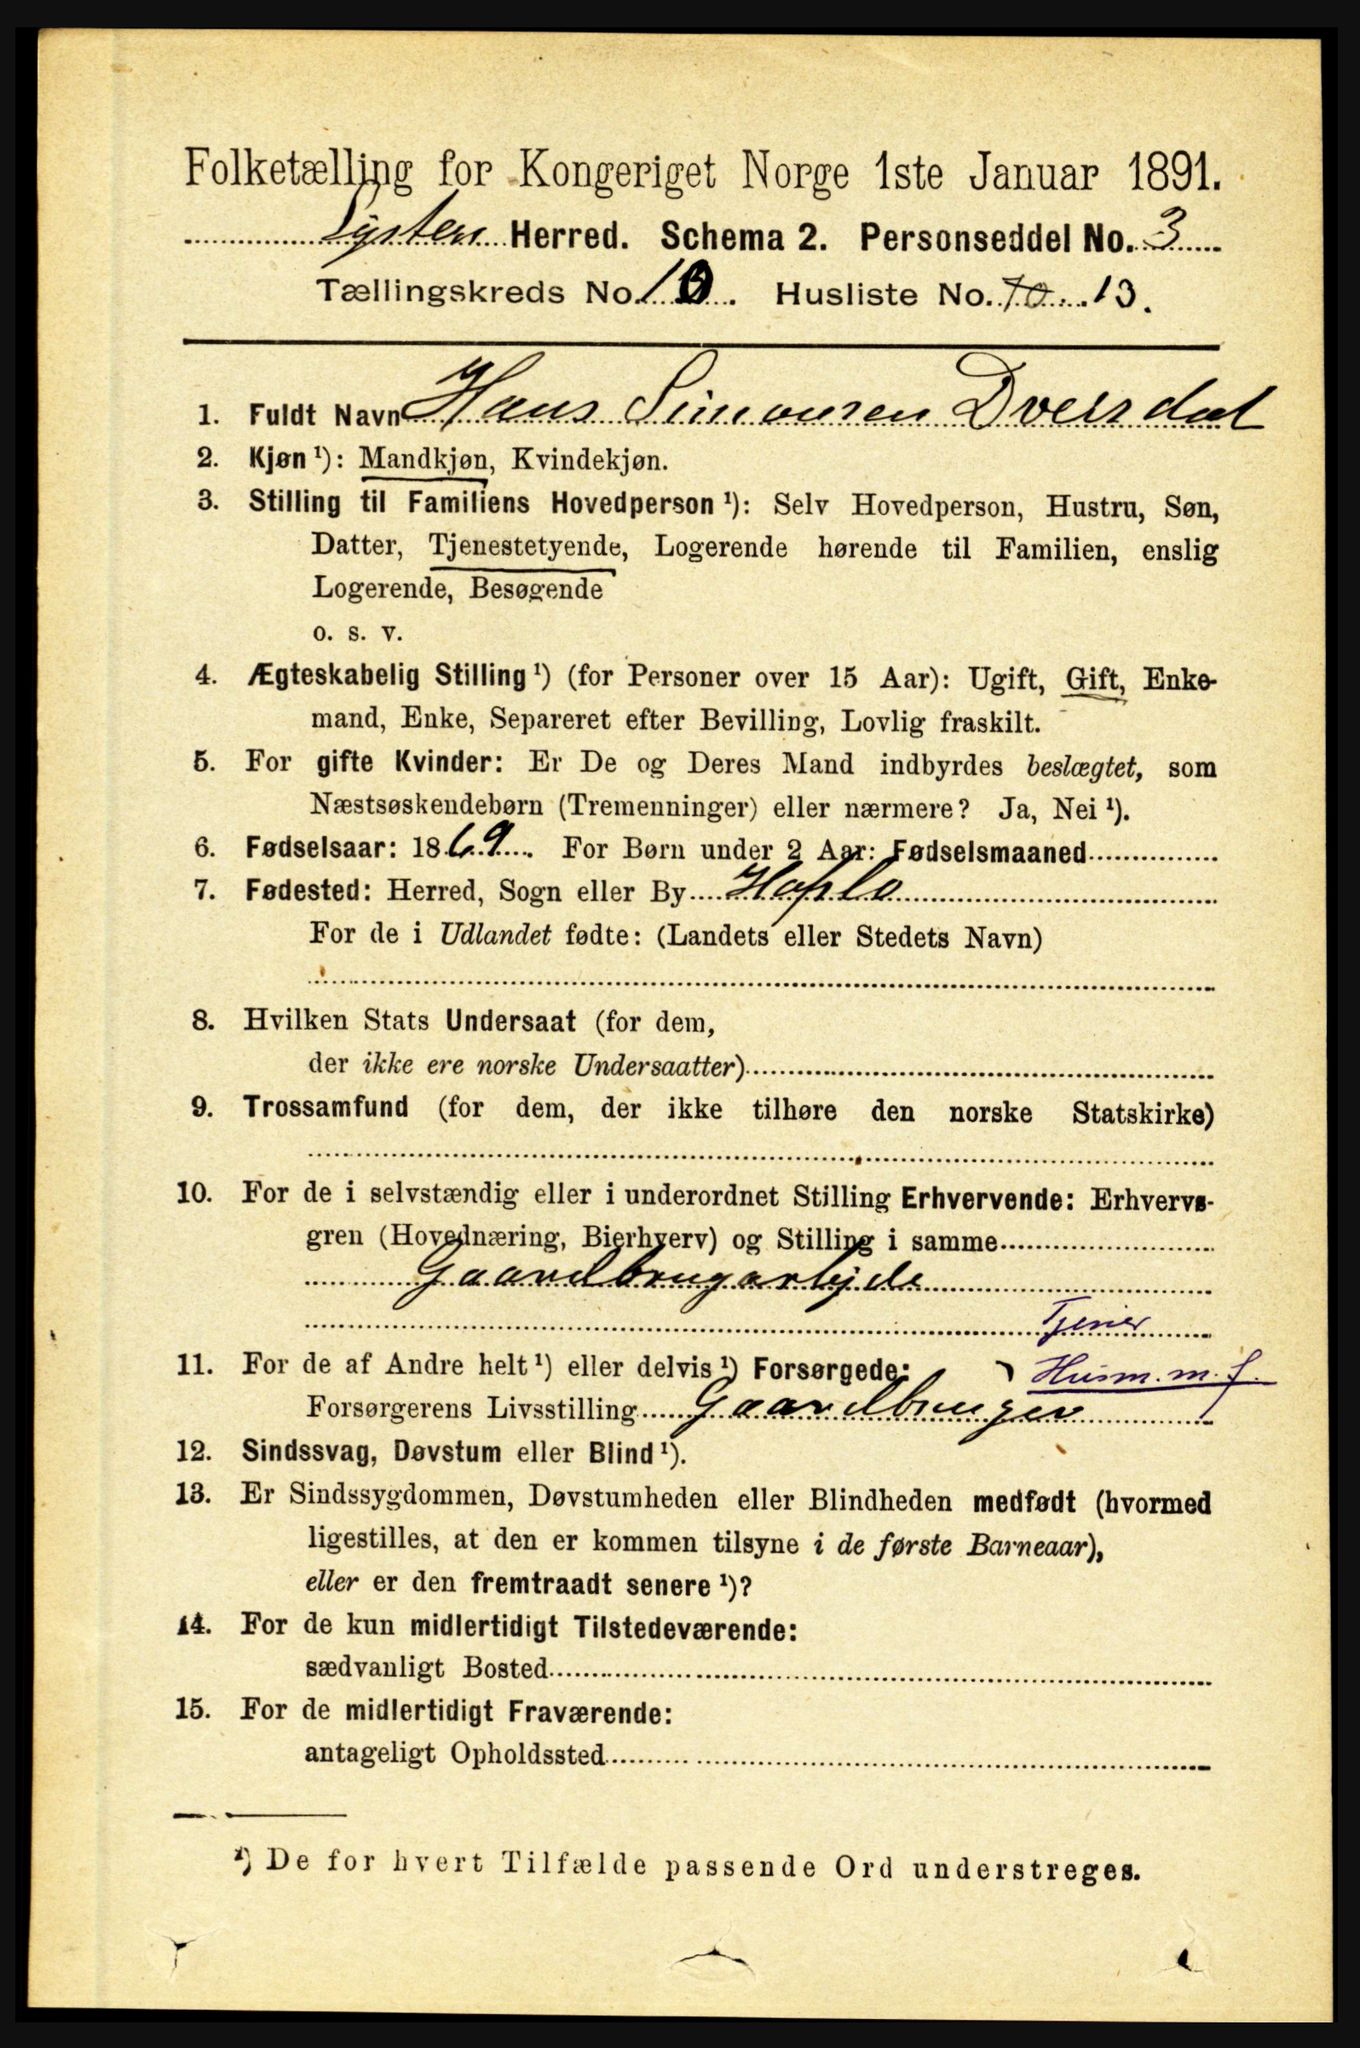 Folketælling for Kongeriget Norge 1ste Januar 1891.
Lyster Herred. Schema 2. Personseddel No. 3
Tællingskreds No. 10. Husliste No. 10. 13.
1. Fuldt Navn Hans Simonsen Dversdal
2. Kjøn ¹): Mandkjøn, Kvindekjøn.
3. Stilling til Familiens Hovedperson ¹): Selv Hovedperson, Hustru, Søn,
Datter, Tjenestetyende, Logerende hørende til Familien, enslig
Logerende, Besøgende
o. s. v.
4. Ægteskabelig Stilling ¹) (for Personer over 15 Aar): Ugift, Gift, Enke-
mand, Enke, Separeret efter Bevilling, Lovlig fraskilt.
5. For gifte Kvinder: Er De og Deres Mand indbyrdes beslægtet, som
Næstsøskendebørn (Tremenninger) eller nærmere? Ja, Nei ¹).
6. Fødselsaar: 1869. For Børn under 2 Aar: Fødselsmaaned
7. Fødested: Herred, Sogn eller By Hafslo
For de i Udlandet fødte: (Landets eller Stedets Navn)
8. Hvilken Stats Undersaat (for dem,
der ikke ere norske Undersaatter)
9. Trossamfund (for dem, der ikke tilhøre den norske Statskirke)
10. For de i selvstændig eller i underordnet Stilling Erhvervende: Erhvervs-
gren (Hovednæring, Bierhverv) og Stilling i samme
Gaardbrugarbejde
Tjener
11. For de af Andre helt ¹) eller delvis ¹) Forsørgede: Husm. m. f.
Forsørgerens Livsstilling Gaardbruger
12. Sindssvag, Døvstum eller Blind ¹).
13. Er Sindssygdommen, Døvstumheden eller Blindheden medfødt (hvormed
ligestilles, at den er kommen tilsyne i de første Barneaar),
eller er den fremtraadt senere ¹)?
14. For de kun midlertidigt Tilstedeværende:
sædvanligt Bosted
15. For de midlertidigt Fraværende:
antageligt Opholdssted
¹) De for hvert Tilfælde passende Ord understreges.